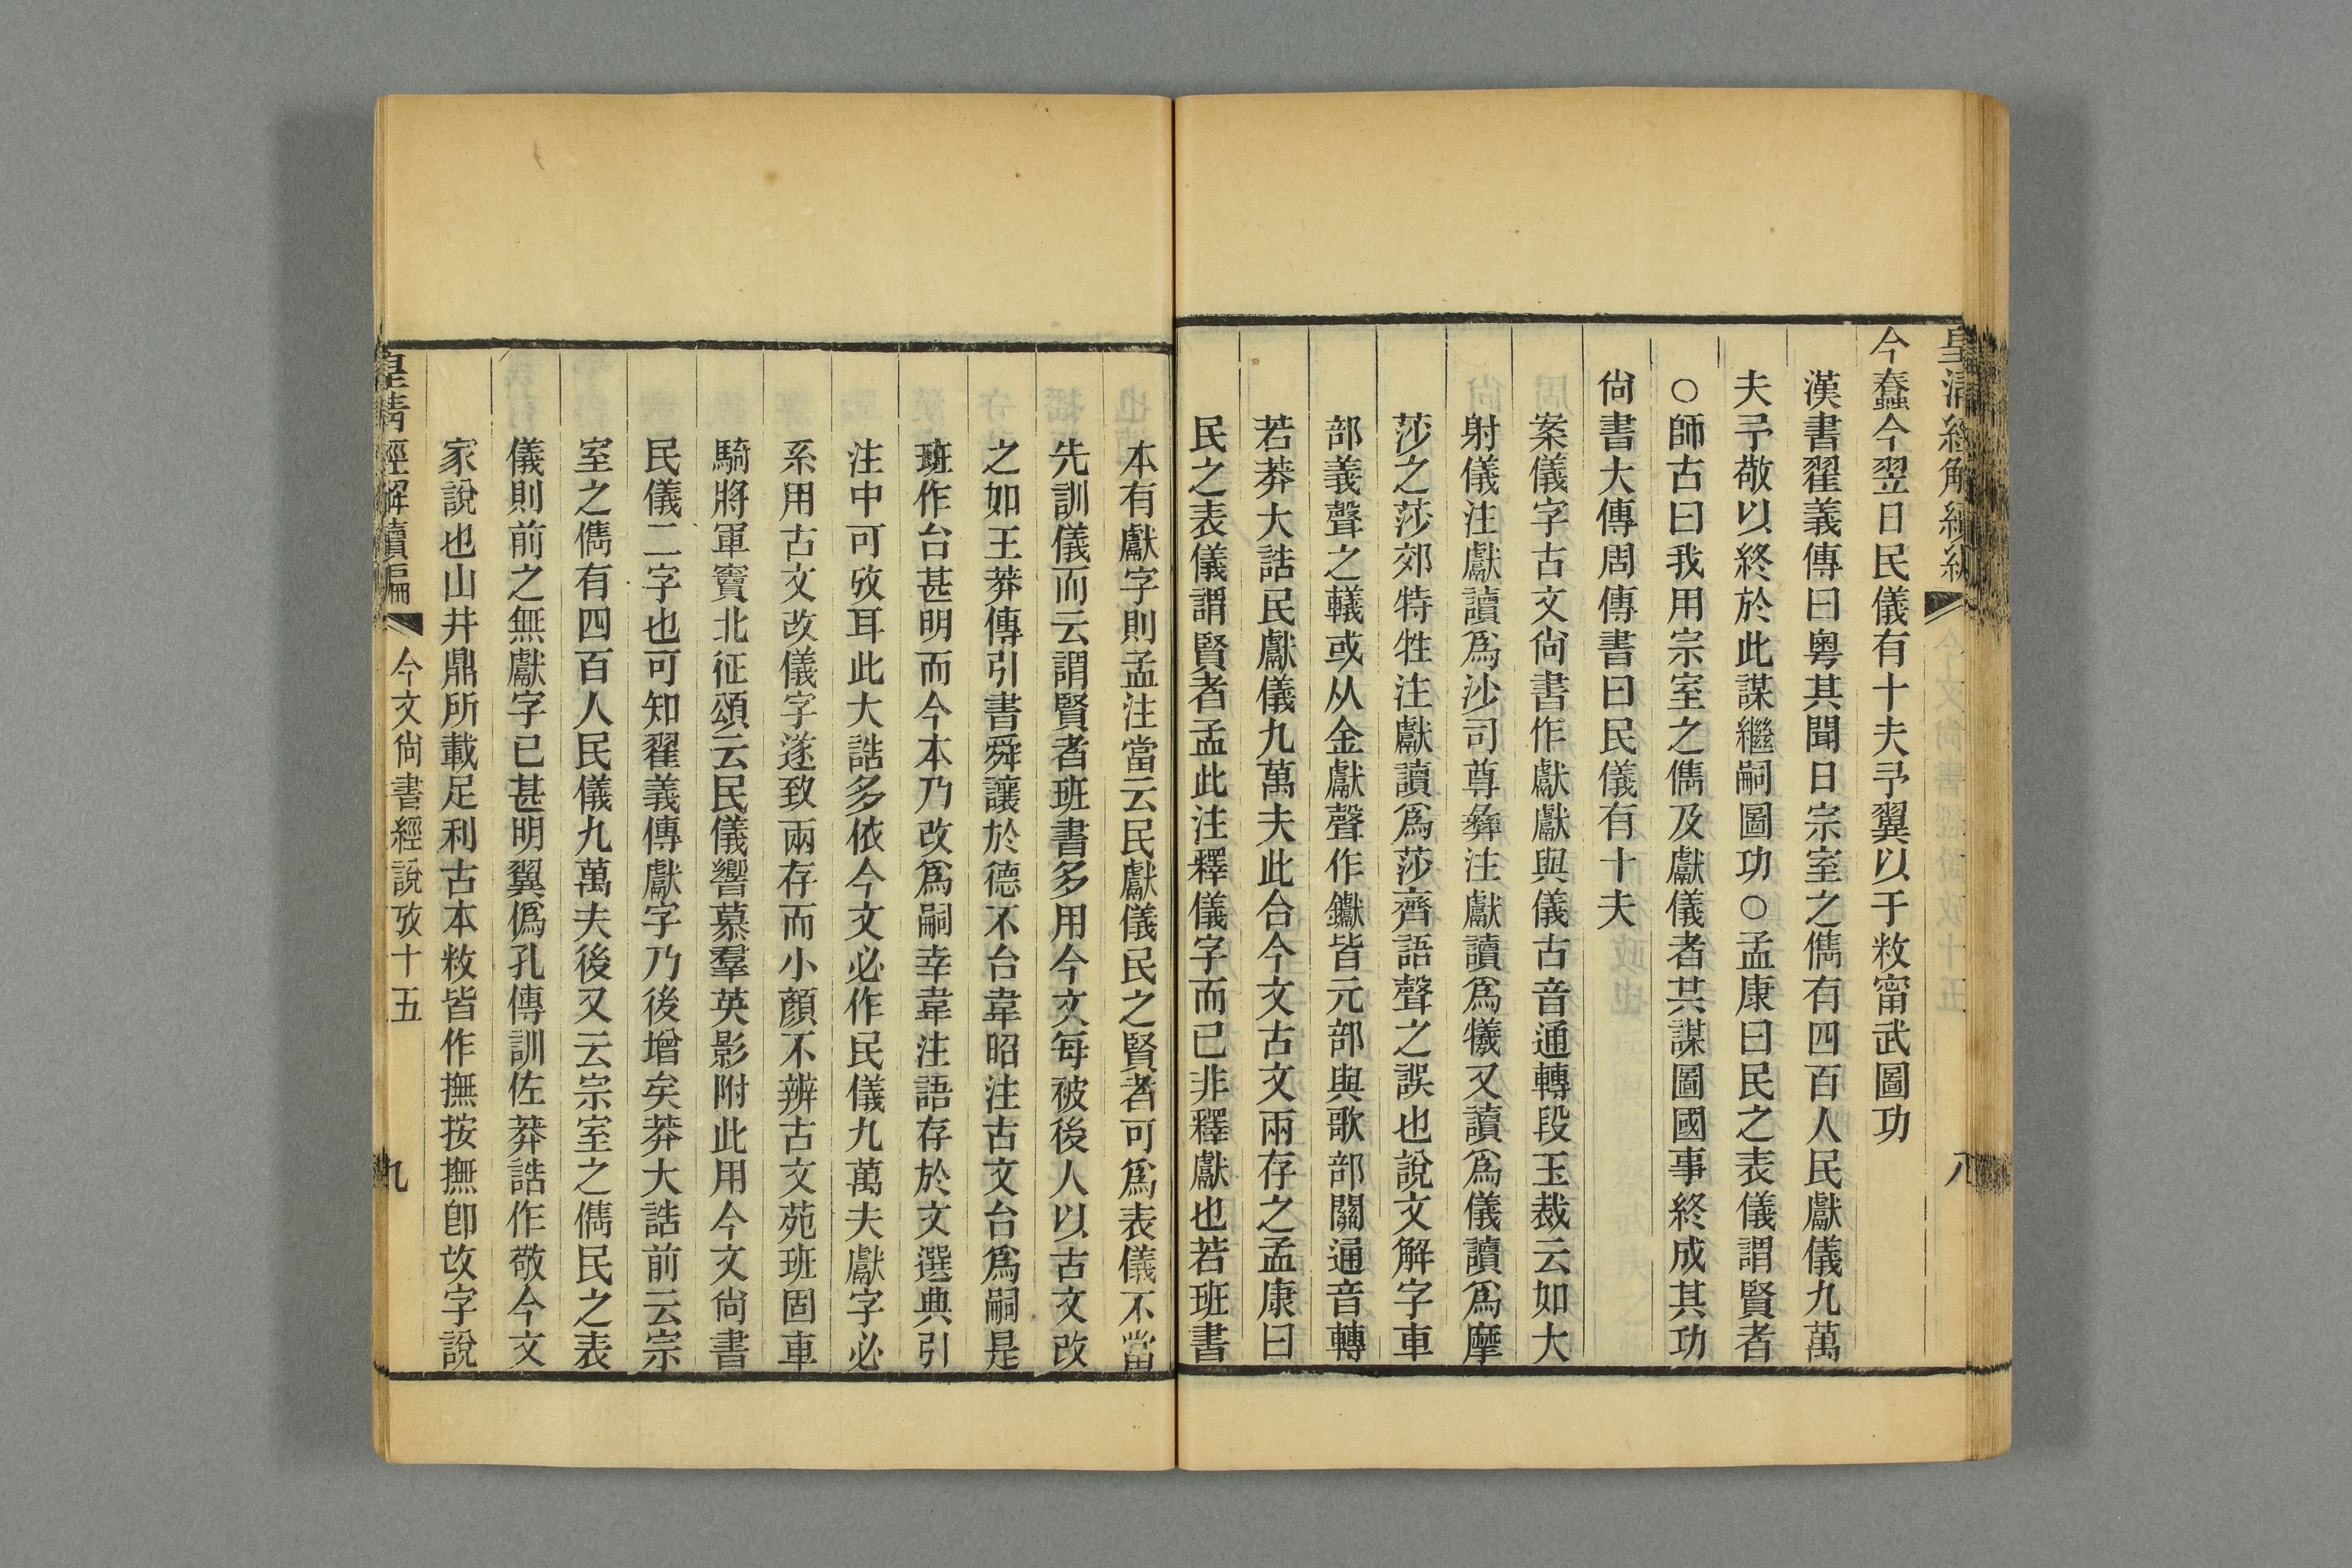 皇清經解續編
八
今蠢今翌日民儀有十夫予翼以于敉甯武圖功
漢書翟義傳曰粵其聞日宗室之儁有四百人民獻儀九萬
夫予敬以終於此謀繼嗣圖功○孟康曰民之表儀謂賢者
○師古曰我用宗室之儁及獻儀者共謀圖國事終成其功
尙書大傳周傳書曰民儀有十夫
案儀字古文尙書作獻獻與儀古音通轉段玉裁云如大
射儀注獻讀爲沙司尊彝注獻讀爲犧又讀爲儀讀爲摩
莎之莎郊特牲注獻讀爲莎齊語聲之誤也說文解字車
部義聲之轙或从金獻聲作钀皆元部與歌部關通音轉
若莽大誥民獻儀九萬夫此合今文古文兩存之孟康曰
民之表儀謂賢者孟此注釋儀字而已非釋獻也若班書
本有獻字則孟注當云民獻儀民之賢者可爲表儀不當
先訓儀而云謂賢者班書多用今文每被後人以古文改
之如王莽傳引書舜讓於德不台韋昭注古文台爲嗣是
班作台甚明而今本乃改爲嗣幸韋注語存於文選典引
注中可攷耳此大誥多依今文必作民儀九萬夫獻字必
系用古文改儀字遂致兩存而小顏不辨古文苑班固車
騎將軍竇北征頌云民儀響慕羣英影附此用今文尙書
民儀二字也可知翟義傳獻字乃後增矣莽大誥前云宗
室之儁有四百人民儀九萬夫後又云宗室之儁民之表
儀則前之無獻字已甚明翼僞孔傳訓佐莽誥作敬今文
家說也山井鼎所載足利古本敉皆作撫按撫卽攷字說
皇清經解續編
今文尙書經說攷十五
九